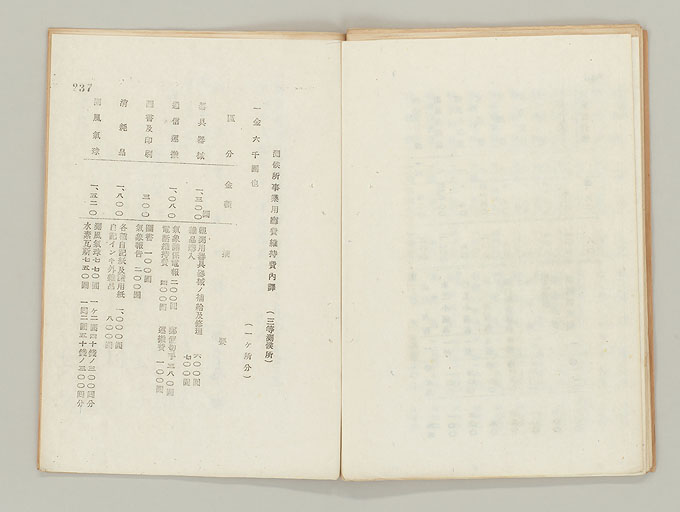 測候所事業用廳費維持費內譯 (三等測候所)
一金六千圓也 (一ヶ所分)
區分 金額 摘要
器具器械 一、三〇〇圓 觀測用器具器械ノ補給及修理 六〇〇圓
備品購入 七〇〇圓
通信運搬 一、〇八〇 氣象關係電報 二〇〇圓 郵便切手 三八〇圓
電話維持費 四〇〇圓 運搬費 一〇〇圓
圖書及印刷 三〇〇 圖書 一〇〇圓
氣象報告 二〇〇圓
消耗品 一、八〇〇 各種自記紙及諸用紙 一、〇〇〇圓
自記インキ外雜品 八〇〇圓
測風氣球 一、五二〇 測風氣球 七七〇圓 一ヶ二圓 十錢ノ三〇〇圓分
水素瓦斯 七五〇圓 一圓二圓五十錢ノ三〇〇圓分
237